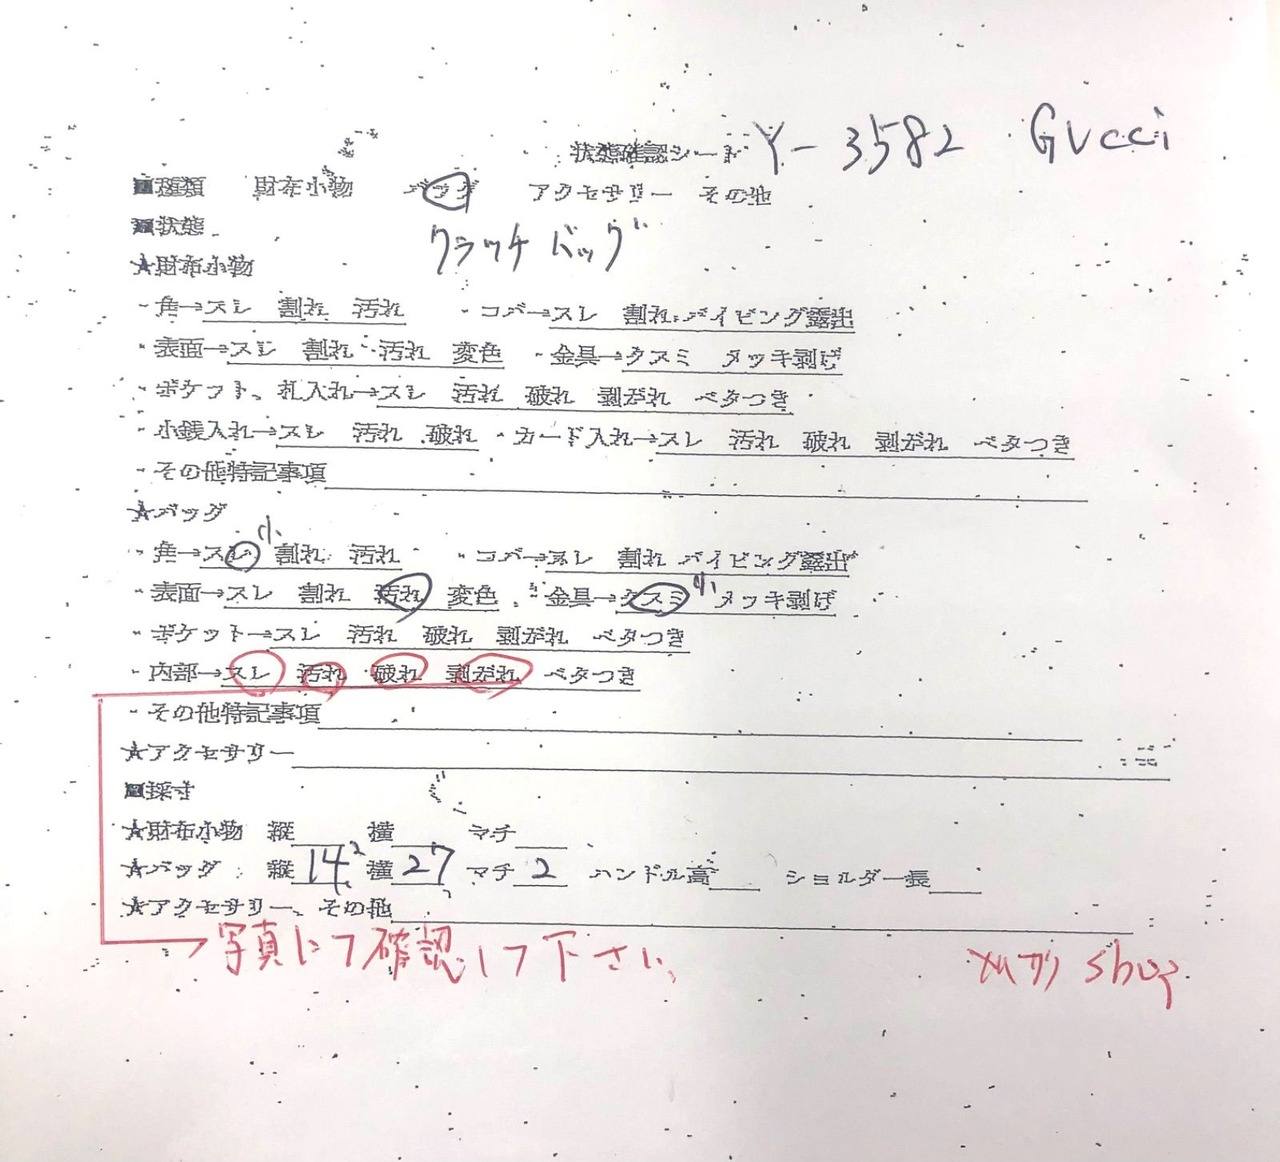 状態確認シート Y-3582 Gucci
■種類 財布小物 バッグ アクセサリー その他
■状態 クラッチバッグ
★財布小物
・角→スレ 割れ 汚れ ・コバ→スレ 割れ パイピング露出
・表面→スレ 割れ 汚れ 変色 ・金具→クスミ メッキ剥げ
・ポケット、札入れ→スレ 汚れ 破れ 剥がれ ベタつき
・小銭入れ→スレ 汚れ 破れ ・カード入れ→スレ 汚れ 破れ 剥がれ ベタつき
・その他特記事項
★バッグ
・角→スレ 小 割れ 汚れ ・コバ→スレ 割れ パイピング露出
・表面→スレ 割れ 汚れ 変色 ・金具→クスミ 小 メッキ剥げ
・ポケット→スレ 汚れ 破れ 剥がれ ベタつき
・内部→スレ 汚れ 破れ 剥がれ ベタつき
・その他特記事項
★アクセサリー
■採寸
★財布小物 縦 横 マチ
★バッグ 縦 14 横 27 マチ 2 ハンドル高 ショルダー長
★アクセサリー、その他
→写真にて確認して下さい。
shop